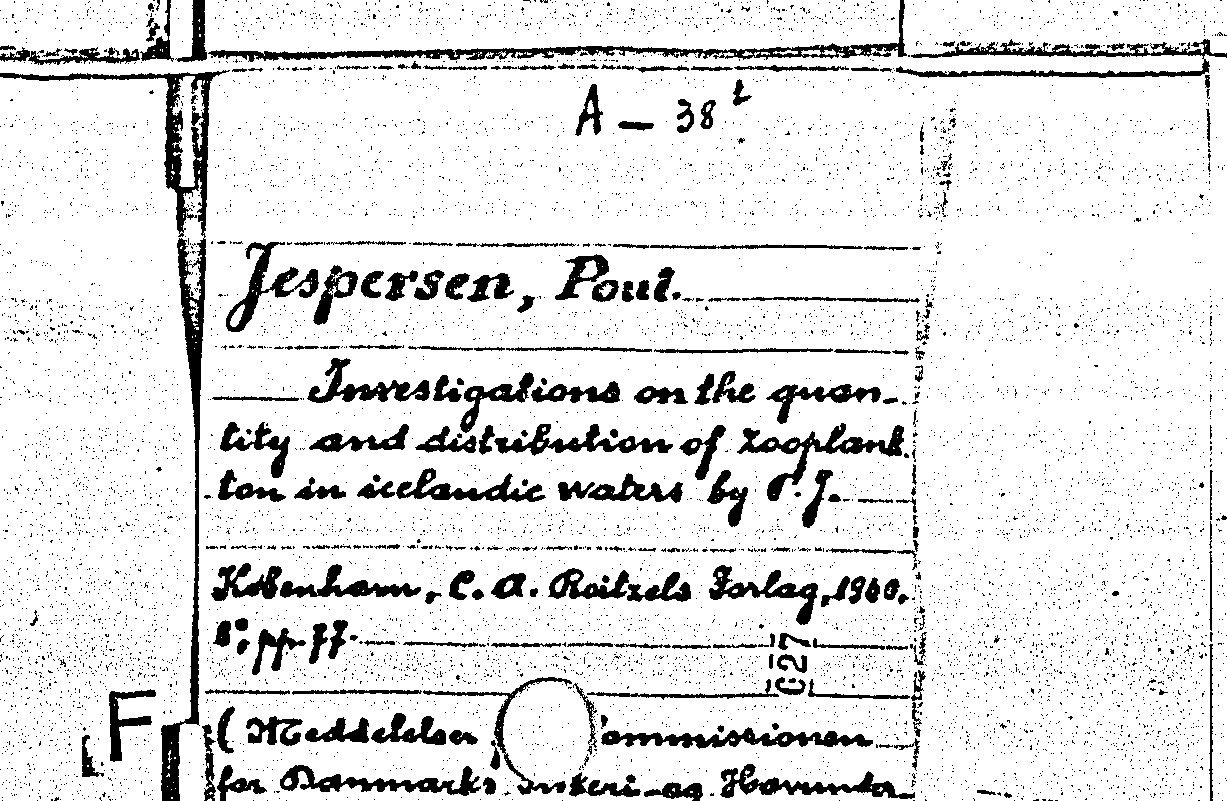 A — 38
Jespersen, Poul.
Investigations on the quan-
tity and distribution of zooplank
ton in icelandic waters by P. J.
København, C. A. Reitzels Forlag, 1940.
8°, pp. 77.
C27
F
( Meddelelser ommissionen
for Danmarks og Havunder-